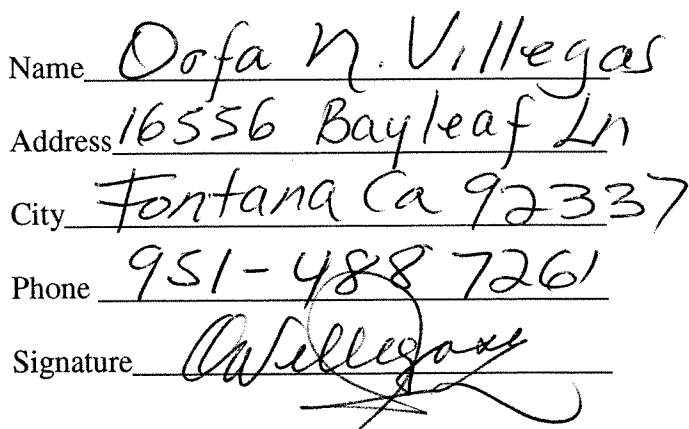 Name Orfa N. Villegas
Address 16556 Bayleaf Ln
City Fontana Ca 92337
Phone 951-488 7261
Signature OVillegas